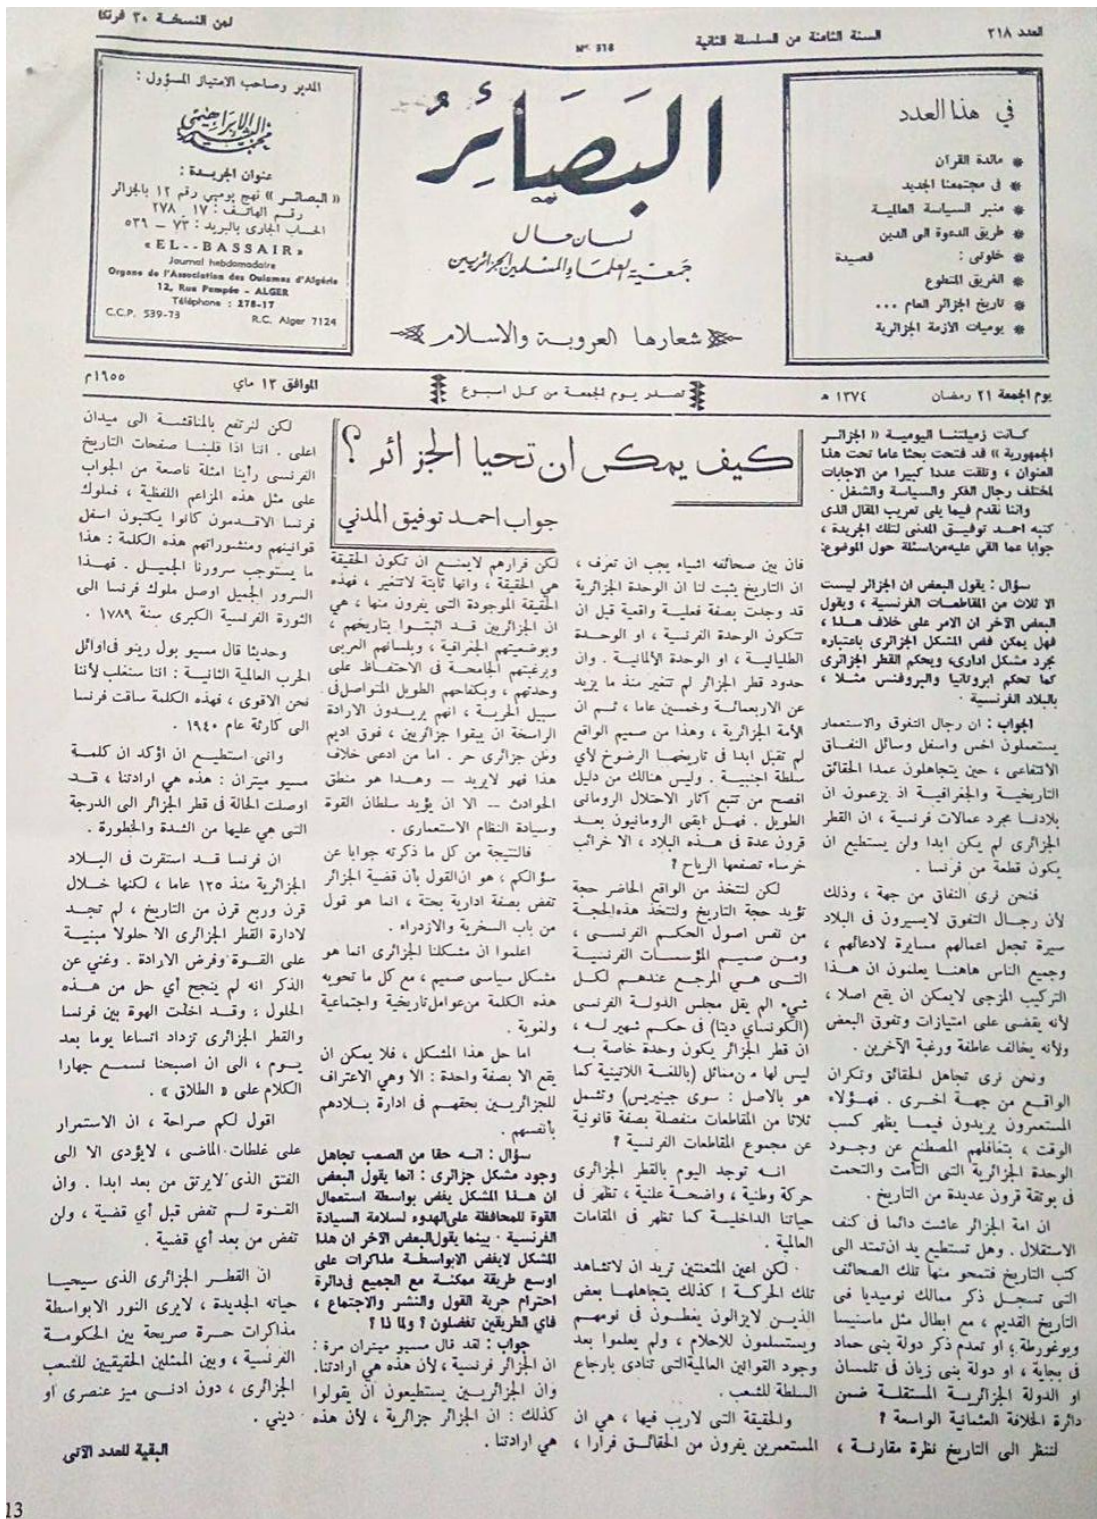 العدد ٢١٨
السنة الثامنة من السلسلة الثانية
Nº 318
ثمن النسخة ٢٠ فرنكا
في هذا العدد
* مائدة القرآن
* في مجتمعنا الجديد
* منبر السياسة العالمية
* طريق الدعوة الى الدين
* خلوتى : قصيدة
* الفريق المتطوع
* تاريخ الجزائر العام ...
* يوميات الازمة الجزائرية
البَصَائِرُ
لسان حال
جمعية العلماء المسلمين الجزائريين
شعارها العروبة والاسلام
المدير وصاحب الامتياز المسؤول :
محمد البشير الابراهيمي
عنوان الجريدة :
« البصائر » نهج بومبي رقم ١٢ بالجزائر
رقم الهاتف : ١٧ ـ ٢٧٨
الحساب الجارى بالبريد : ٧٣ – ٥٣٩
«EL--BASSAIR»
Journal hebdomadaire
Organe de l'Association des Oulamas d'Algérie
12, Rue Pompée - ALGER
Téléphone : 278-17
C.C.P. 539-73 R.C. Alger 7124
يوم الجمعة ٢١ رمضان ١٣٧٤ هـ
تصدر يوم الجمعة من كل اسبوع
الموافق ١٣ ماي ١٩٥٥م
كيف يمكن ان تحيا الجزائر ؟
جواب احمد توفيق المدني
كانت زميلتنا اليومية « الجزائر
الجمهورية » قد فتحت بحثا عاما تحت هذا
العنوان ، وتلقت عددا كبيرا من الاجابات
لمختلف رجال الفكر والسياسة والشغل .
واننا نقدم فيما يلى تعريب المقال الذى
كتبه احمد توفيق المدنى لتلك الجريدة ،
جوابا عما القي عليه من اسئلة حول الموضوع:
سؤال : يقول البعض ان الجزائر ليست
الا ثلاث من المقاطعات الفرنسية ، ويقول
البعض الآخر ان الامر على خلاف هذا ،
فهل يمكن فض المشكل الجزائرى باعتباره
مجرد مشكل ادارى، ويحكم القطر الجزائرى
كما تحكم ابروتانيا والبروفنس مثلا ،
بالبلاد الفرنسية .
الجواب : ان رجال التفوق والاستعمار
يستعملون اخس واسفل وسائل النفاق
الانتفاعى ، حين يتجاهلون عمدا الحقائق
التاريخية والجغرافية اذ يزعمون ان
بلادنا مجرد عمالات فرنسية ، ان القطر
الجزائرى لم يكن ابدا ولن يستطيع ان
يكون قطعة من فرنسا .
فنحن نرى النفاق من جهة ، وذلك
لأن رجال التفوق لايسيرون فى البلاد
سيرة تجعل اعمالهم مسايرة لادعائهم ،
وجميع الناس هاهنا يعلمون ان هذا
التركيب المزجى لايمكن ان يقع اصلا ،
لأنه يقضى على امتيازات وتفوق البعض
ولأنه يخالف عاطفة ورغبة الآخرين .
ونحن نرى تجاهل الحقائق ونكران
الواقع من جهة اخرى . فهؤلاء
المستعمرون يريدون فيما يظهر كسب
الوقت ، بتغافلهم المصطنع عن وجود
الوحدة الجزائرية التى التأمت والتحمت
فى بوتقة قرون عديدة من التاريخ .
ان امة الجزائر عاشت دائما فى كنف
الاستقلال . وهل تستطيع يد ان تمتد الى
كتب التاريخ فتمحو منها تلك الصحائف
التى تسجل ذكر ممالك نوميديا فى
التاريخ القديم ، مع ابطال مثل ماسنيسا
ويوغورطة ؛ او تعدم ذكر دولة بنى حماد
فى بجاية ، او دولة بنى زيان فى تلمسان
او الدولة الجزائرية المستقلة ضمن
دائرة الخلافة العثمانية الواسعة ؟
لننظر الى التاريخ نظرة مقارنة ،
فان بين صحائفه اشياء يجب ان تعرف ،
ان التاريخ يثبت لنا ان الوحدة الجزائرية
قد وجدت بصفة فعلية واقعية قبل ان
تتكون الوحدة الفرنسية ، او الوحدة
الطليانية ، او الوحدة الألمانية . وان
حدود قطر الجزائر لم تتغير منذ ما يزيد
عن الاربعمائة وخمسين عاما ، ثم ان
الأمة الجزائرية ، وهذا من صميم الواقع
لم تقبل ابدا فى تاريخها الرضوخ لأي
سلطة اجنبية . وليس هنالك من دليل
افصح من تتبع آثار الاحتلال الرومانى
الطويل . فهل ابقى الرومانيون بعد
قرون عدة فى هذه البلاد ، الا خرائب
خرساء تصفعها الرياح ؟
لكن لنتخذ من الواقع الحاضر حجة
تؤيد حجة التاريخ ولنتخذ هذه الحجة
من نفس اصول الحكم الفرنسى ،
ومن صميم المؤسسات الفرنسية
التى هي المرجع عندهم لكل
شيء الم يقل مجلس الدولة الفرنسى
(الكونساي ديتا) فى حكم شهير له ،
ان قطر الجزائر يكون وحدة خاصة به
ليس لها من مماثل (باللغة اللاتينية كما
هو بالاصل : سوى جينيريس) وتشمل
ثلاثا من المقاطعات منفصلة بصفة قانونية
عن مجموع المقاطعات الفرنسية ؟
انه توجد اليوم بالقطر الجزائرى
حركة وطنية ، واضحة علنية ، تظهر فى
حياتنا الداخلية كما تظهر فى المقامات
العالمية .
لكن اعين المتعنتين تريد ان لاتشاهد
تلك الحركة ! كذلك يتجاهلها بعض
الذين لايزالون يغطون فى نومهم
ويستسلمون للاحلام ، ولم يعلموا بعد
وجود القوانين العالمية التى تنادى بارجاع
السلطة للشعب .
والحقيقة التى لاريب فيها ، هي ان
المستعمرين يفرون من الحقائق فرارا ،
لكن فرارهم لايمنع ان تكون الحقيقة
هي الحقيقة ، وانها ثابتة لاتتغير ، فهذه
الحقيقة الموجودة التى يفرون منها ، هي
ان الجزائريين قد اثبتوا بتاريخهم ،
وبوضعيتهم الجغرافية ، وبلسانهم العربى
وبرغبتهم الجامحة فى الاحتفاظ على
وحدتهم ، وبكفاحهم الطويل المتواصل فى
سبيل الحرية ، انهم يريدون الارادة
الراسخة ان يبقوا جزائريين ، فوق اديم
وطن جزائرى حر . اما من ادعى خلاف
هذا فهو لايريد — وهذا هو منطق
الحوادث — الا ان يؤيد سلطان القوة
وسيادة النظام الاستعمارى .
فالنتيجة من كل ما ذكرته جوابا عن
سؤالكم ، هو ان القول بأن قضية الجزائر
تفض بصفة ادارية بحتة ، انما هو قول
من باب السخرية والازدراء .
اعلموا ان مشكلنا الجزائرى انما هو
مشكل سياسى صميم ، مع كل ما تحويه
هذه الكلمة من عوامل تاريخية واجتماعية
ولغوية .
اما حل هذا المشكل ، فلا يمكن ان
يقع الا بصفة واحدة : الا وهي الاعتراف
للجزائريين بحقهم فى ادارة بلادهم
بأنفسهم .
سؤال : انه حقا من الصعب تجاهل
وجود مشكل جزائرى : انما يقول البعض
ان هذا المشكل يفض بواسطة استعمال
القوة للمحافظة على الهدوء لسلامة السيادة
الفرنسية . بينما يقول البعض الآخر ان هذا
المشكل لايفض الا بواسطة مذاكرات على
اوسع طريقة ممكنة مع الجميع فى دائرة
احترام حرية القول والنشر والاجتماع ،
فاي الطريقين تفضلون ؟ ولما ذا ؟
جواب : لقد قال مسيو ميتران مرة :
ان الجزائر فرنسية ، لأن هذه هي ارادتنا.
وان الجزائريين يستطيعون ان يقولوا
كذلك : ان الجزائر جزائرية ، لأن هذه
هي ارادتنا .
لكن لنرتفع بالمناقشة الى ميدان
اعلى . اننا اذا قلبنا صفحات التاريخ
الفرنسى رأينا امثلة ناصعة من الجواب
على مثل هذه المزاعم اللفظية ، فملوك
فرنسا الاقدمون كانوا يكتبون اسفل
قوانينهم ومنشوراتهم هذه الكلمة : هذا
ما يستوجب سرورنا الجميل . فهذا
السرور الجميل اوصل ملوك فرنسا الى
الثورة الفرنسية الكبرى سنة ١٧٨٩ .
وحديثا قال مسيو بول رينو فى اوائل
الحرب العالمية الثانية : اننا سنغلب لأننا
نحن الاقوى ، فهذه الكلمة ساقت فرنسا
الى كارثة عام ١٩٤٠ .
وانى استطيع ان اؤكد ان كلمة
مسيو ميتران : هذه هي ارادتنا ، قد
اوصلت الحالة فى قطر الجزائر الى الدرجة
التى هي عليها من الشدة والخطورة .
ان فرنسا قد استقرت فى البلاد
الجزائرية منذ ١٢٥ عاما ، لكنها خلال
قرن وربع قرن من التاريخ ، لم تجد
لادارة القطر الجزائرى الا حلولا مبنية
على القوة وفرض الارادة . وغني عن
الذكر انه لم ينجح أي حل من هذه
الحلول : وقد اخلت الهوة بين فرنسا
والقطر الجزائرى تزداد اتساعا يوما بعد
يوم ، الى ان اصبحنا نسمع جهارا
الكلام على « الطلاق » .
اقول لكم صراحة ، ان الاستمرار
على غلطات الماضى ، لايؤدى الا الى
الفتق الذى لايرتق من بعد ابدا . وان
القوة لم تفض قبل أي قضية ، ولن
تفض من بعد أي قضية .
ان القطر الجزائرى الذى سيحيا
حياته الجديدة ، لايرى النور الا بواسطة
مذاكرات حرة صريحة بين الحكومة
الفرنسية ، وبين الممثلين الحقيقيين للشعب
الجزائرى ، دون ادنى ميز عنصرى او
ديني .
البقية للعدد الآتى
13